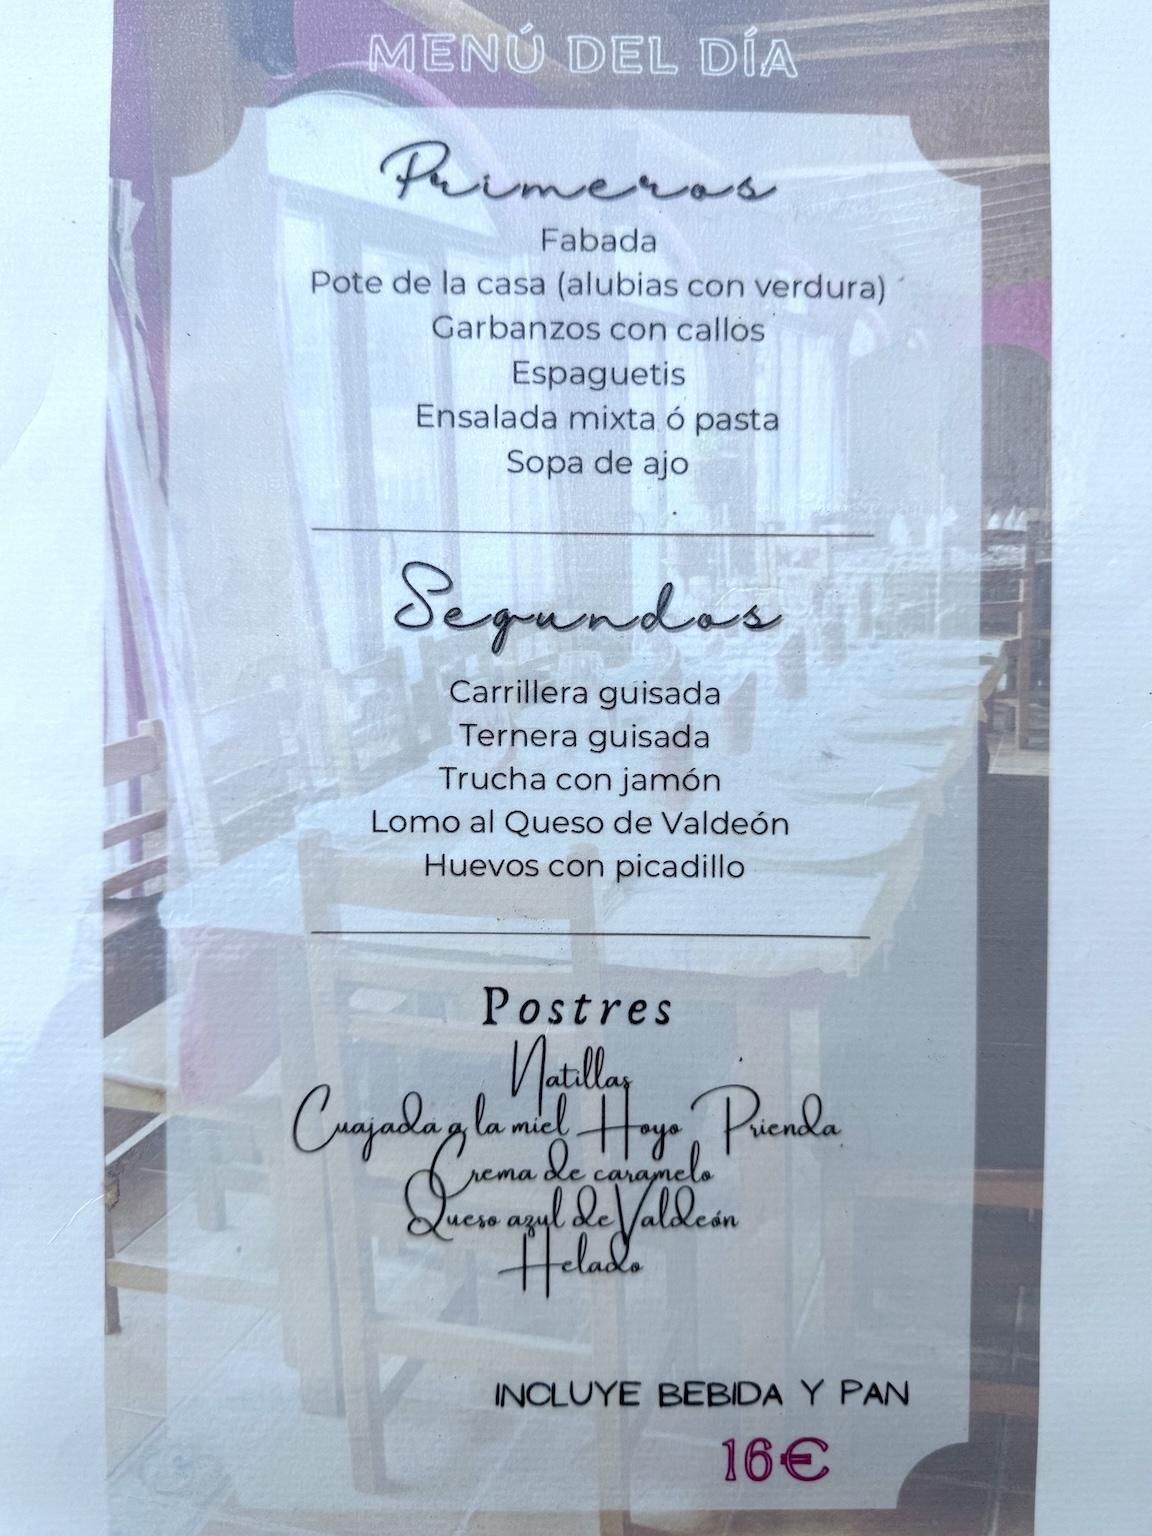 MENÚ DEL DÍA
Primeros
Fabada
Pote de la casa (alubias con verdura)
Garbanzos con callos
Espaguetis
Ensalada mixta ó pasta
Sopa de ajo
Segundos
Carrillera guisada
Ternera guisada
Trucha con jamón
Lomo al Queso de Valdeón
Huevos con picadillo
Postres
Natillas
Cuajada a la miel Hoyo Prienda
Crema de caramelo
Queso azul de Valdeón
Helado
INCLUYE BEBIDA Y PAN
16€